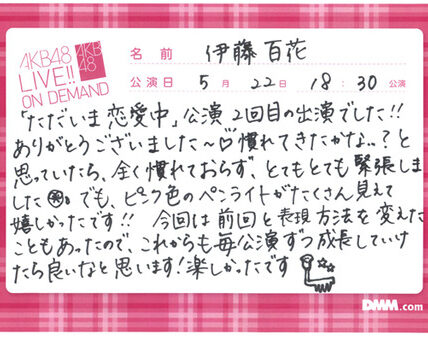 AKB48
LIVE!!
ON DEMAND
AKB
48
名前 伊藤百花
公演日 5月22日 18:30公演
「ただいま恋愛中」公演2回目の出演でした!!
ありがとうございました〜♡慣れてきたかな..?と
思っていたら、全く慣れておらず、とてもとても緊張しま
した。でも、ピンク色のペンライトがたくさん見えて
嬉しかったです!! 今回は前回と表現方法を変えた
こともあったので、これからも毎公演ずつ成長していけ
たら良いなと思います!楽しかったです
DMM.com